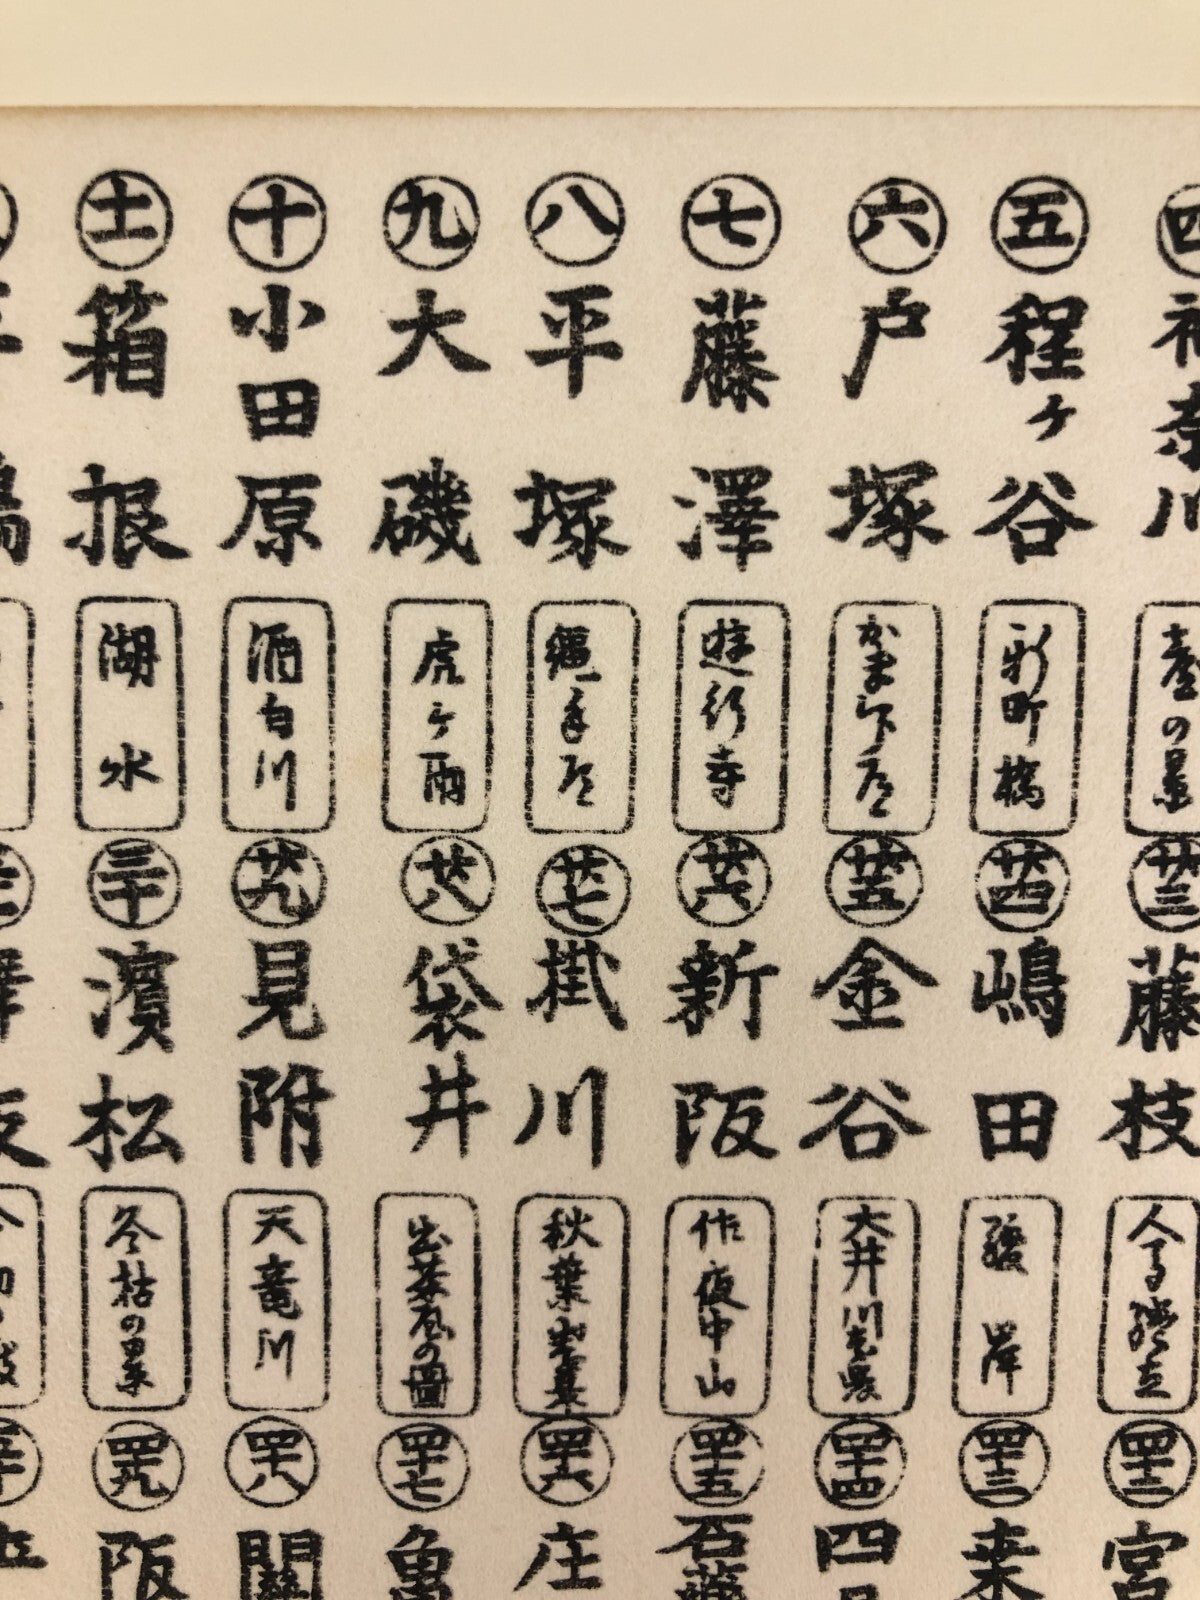 四
神奈川
臺の景
五
程ヶ谷
新町橋
六
戸塚
かまくら道
七
藤澤
遊行寺
八
平塚
縄手道
九
大磯
虎ヶ雨
十
小田原
酒匂川
十一
箱根
湖水
廿三
藤枝
人馬継立
廿四
嶋田
駿岸
廿五
金谷
大井川遠岸
廿六
新阪
作夜中山
廿七
掛川
秋葉山
廿八
袋井
出茶屋の圖
廿九
見附
天竜川
三十
濱松
冬枯の景
四十二
宮
四十三
桑
四十四
四日
四十五
石藥
四十六
庄
四十七
亀
四十八
關
四十九
阪